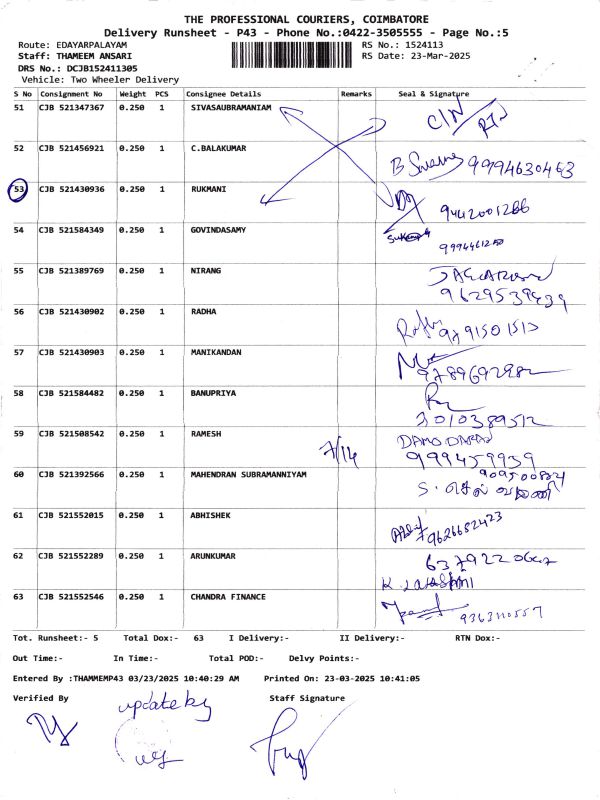 THE PROFESSIONAL COURIERS, COIMBATORE
Delivery Runsheet - P43 - Phone No.:0422-3505555 - Page No.:5
Route: EDAYARPALAYAM RS No.: 1524113
Staff: THAMEEM ANSARI RS Date: 23-Mar-2025
DRS No.: DCJB152411305
Vehicle: Two Wheeler Delivery
S No Consignment No Weight PCS Consignee Details Remarks Seal & Signature
51 CJB 521347367 0.250 1 SIVASAUBRAMANIAM C/N
52 CJB 521456921 0.250 1 C.BALAKUMAR 9994630463
53 CJB 521430936 0.250 1 RUKMANI 9442001266
54 CJB 521584349 0.250 1 GOVINDASAMY
55 CJB 521389769 0.250 1 NIRANG
56 CJB 521430902 0.250 1 RADHA
57 CJB 521430903 0.250 1 MANIKANDAN
58 CJB 521584482 0.250 1 BANUPRIYA
59 CJB 521508542 0.250 1 RAMESH 7/14 DAMODARAN
999459939
60 CJB 521392566 0.250 1 MAHENDRAN SUBRAMANNIYAM
61 CJB 521552015 0.250 1 ABHISHEK 9626682423
62 CJB 521552289 0.250 1 ARUNKUMAR
63 CJB 521552546 0.250 1 CHANDRA FINANCE 9363110557
Tot. Runsheet:- 5 Total Dox:- 63 I Delivery:- II Delivery:- RTN Dox:-
Out Time:- In Time:- Total POD:- Delvy Points:-
Entered By :THAMMEMP43 03/23/2025 10:40:29 AM Printed On: 23-03-2025 10:41:05
Verified By update by Staff Signature